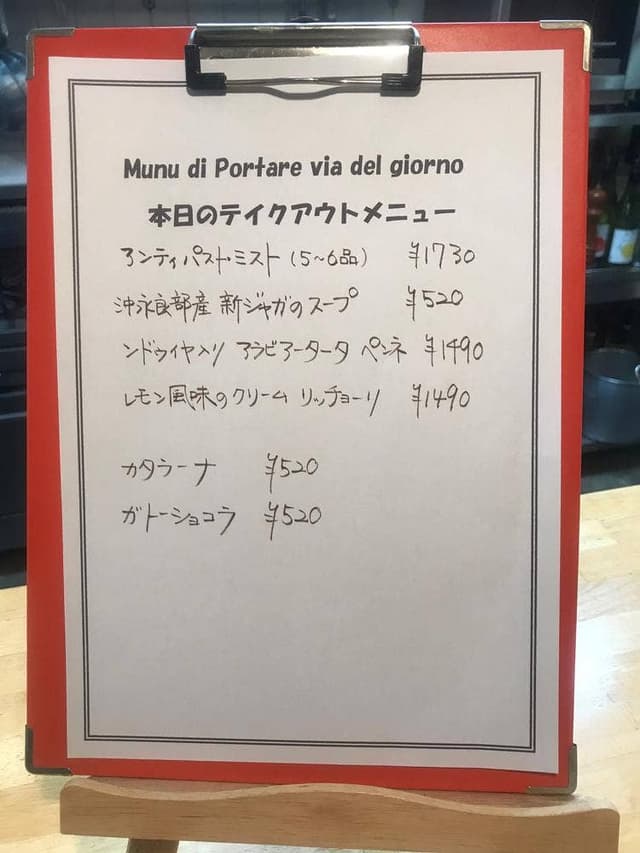 Munu di Portare via del giorno
本日のテイクアウトメニュー
アンティパスト・ミスト (5~6品) ¥1730
沖永良部産 新ジャガのスープ ¥520
ンドゥイヤ入り アラビアータータ ペンネ ¥1490
レモン風味のクリーム リッチョーリ ¥1490
カタラーナ ¥520
ガトーショコラ ¥520